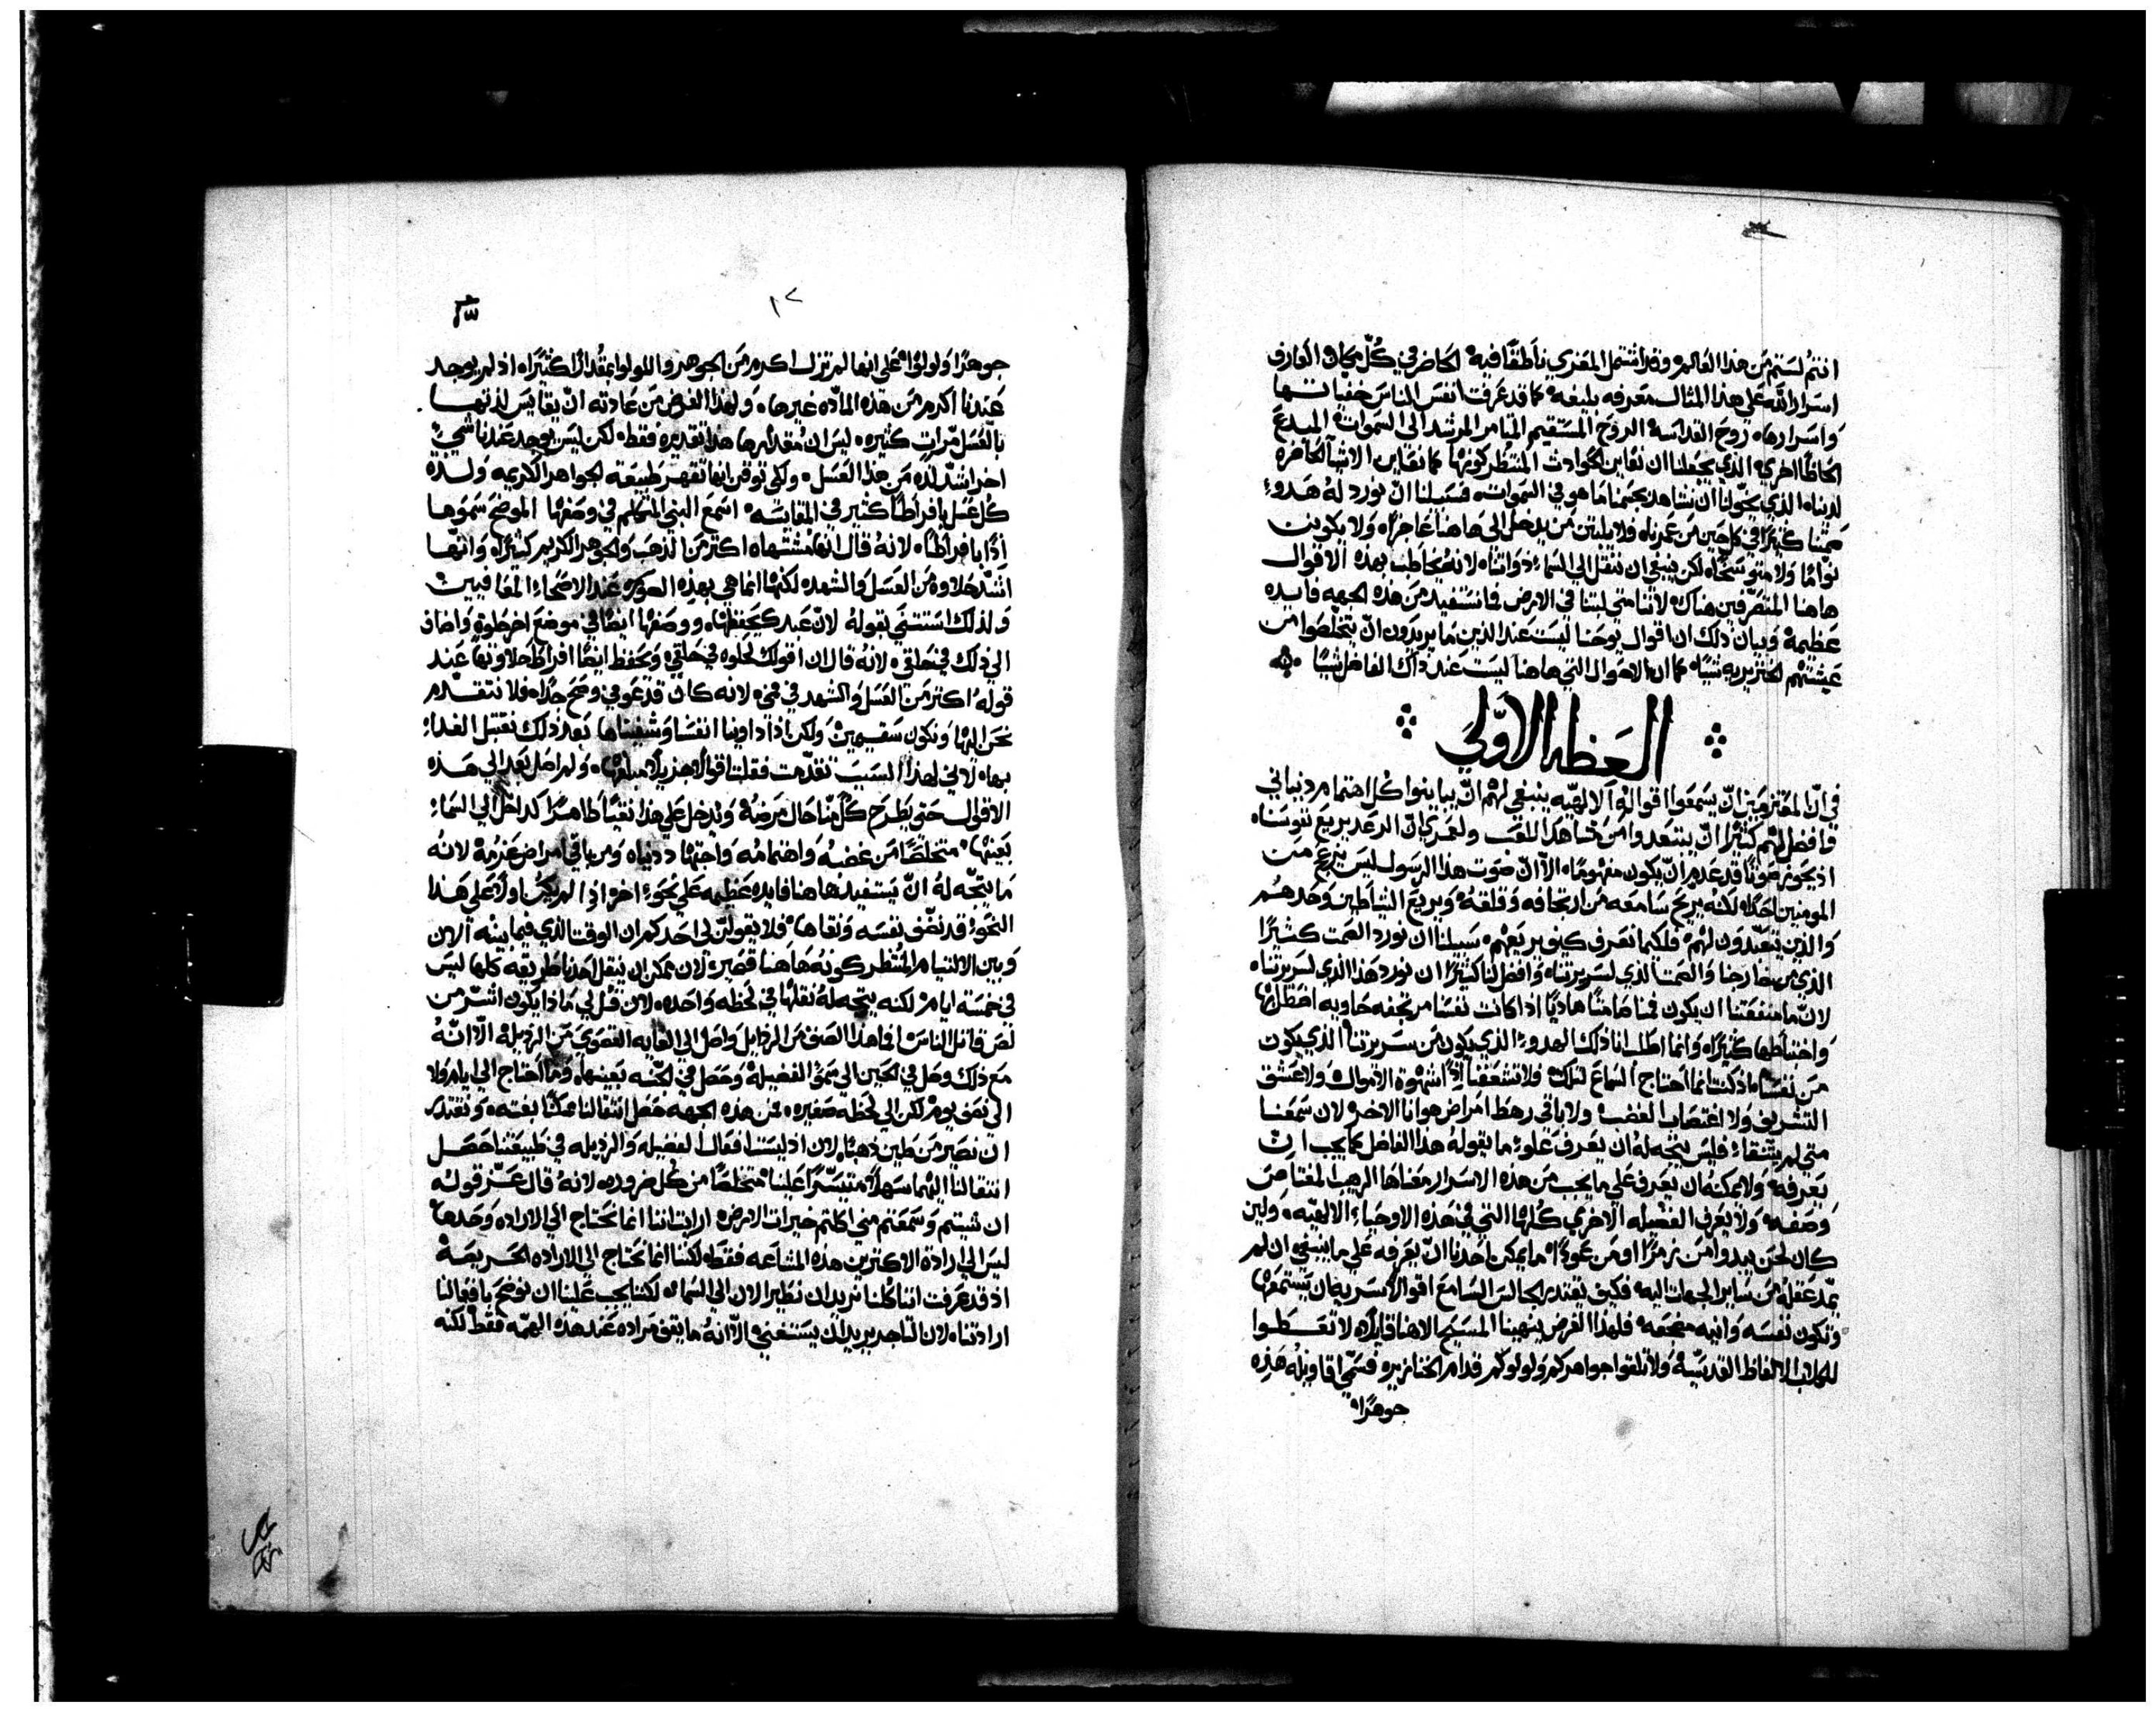 انتم لستم من هذا العالم وقد اشتمل المعزي ناطقا فيه الحاضر في كل مكان العارف
اسرار الله على هذا المثال معرفه بليغه كما قد عرفت انفس الناس خفياتها
واسرارها روح القداسه الروح المستقيم المرشد الى السموات المبدع
الحاظا اخرى الذي يجعلنا ان نعاين الحوادث المنتظر كونها كما نعاين الاشيا الحاضره
لدينا الذي يخولنا ان نشاهد بجسمنا ما هو في السموات فسبيلنا ان نورد له هدوء
صمتنا كثيرا في كل حين من عمرنا ولا يلبثن من يدخل الى هاهنا عاجزا ولا يكونن
نواما ولا متوسخا لكن ينبغي ان ننتقل الى السماء ذواتنا لانه يخاطب بهذه الاقوال
هاهنا المتصرفين هناك لاننا متى لبثنا في الارض فما نستفيد من هذه الجهه فايده
عظيمة وبيان ذلك ان اقوال يوحنا ليست عند الذين ما يريدون ان يتخلصوا من
عيشتهم الخنزيريه شيا كما ان الاحوال التي هاهنا ليست عند ذاك الفاضل شيا
العظه الاولى
في ان المعتزمين ان يسمعوا اقواله الالهيه ينبغي لهم ان يباينوا كل اهتمام دنياني
وافضل لهم كثيرا ان يبتعدوا من مشاهد اللعب ولعمري ان الرعد يريع نفوسنا
اذ يحوز صوتا قد عدم ان يكون مفهوما الا ان صوت هذا الرسول ليس يزعج من
المومنين احدا لكنه يريح سامعه من ارتجافه وقلقه ويريع الشياطين وحدهم
والذين يتعبدون لهم فلكيما نعرف كيف يريعهم سبيلنا ان نورد الصمت كثيرا
الذي من خارجنا والصمت الذي لسريرتنا وافضل لنا كثيرا ان نورد هذا الذي لسريرتنا
لان ما منفعتنا ان يكون فمنا صامتا هاديا اذا كانت نفسنا مرتجفه حاويه
واختباطها كثيرا وانما اطلب انا ذلك الهدوء الذي يكون من سريرتنا الذي يكون
من نفسنا اذ كنت انما احتاج السماع لتلك ولا تشعفنا اذا شهوة الاموال ولا عشق
التشريف ولا اغتصاب الغضب ولا باقي رهط امراض هوانا الاخر لان سمعنا
متى لم يتنقا فليس يتجه له ان يعرف علوء ما يقوله هذا الفاضل كما يجب ان
يعرفه ولا يمكنه ان يعرف على ما يجب من هذه الاسرار معناها الرهيب المعتاص
وصفه ولا يعرف الفضيله الاخرى كلها التي في هذه الاوحياء الالهيه ولين
كان لحن يبدوا من زمر او من عود ما يمكن احدنا ان يعرفه على ما ينبغي ان لم
يمد عقله من ساير الجهات اليه فكيف يقتدر الجالس السامع اقوالا سريه ان يستمعها
وتكون نفسه وانيه مضجعه فلهذا الغرض ينهينا المسيح الاهنا قايلا لا تعطوا
للكلاب الالفاظ القدسيه ولا تلقوا جواهركم ولولوكم قدام الخنازير فسمى اقاويله هذه
جوهرا
جوهرا ولولوا على انها لم تزل اكرم من الجوهر واللولوا بمقدار اكثيرا اذ لم يوجد
عندنا اكرم من هذه الماده غيرها ولهذا الغرض من عادته ان يقايس لذتها
بالعسل مرات كثيره ليس ان مقدارها هذا تقديره فقط لكن ليس يوجد عندنا شي
اخر اشد لذه من هذا العسل ولكي توقن انها تقهر طبيعة الجواهر الكريمه ولذة
كل عسل بافراط كثير في المقايسه اسمع النبي المتكلم في وصفها الموضح سموها
اذا بافراط لانه قال انها مشتهاه اكثر من الذهب والجوهر الكريم كثيرا وانها
اشد حلاوه من العسل والشهد لكنها انما هي بهذه الصوره عند الاصحاء المعافيين
ولذلك استثنى بقوله لان عبدك يحفظها ووصفها ايضا في موضع اخر حلوة واضاف
الى ذلك في حلقي لانه قال ان اقوالك لحلوه في حلقي وتحفظ ايضا افراط حلاوتها عند
قوله اكثر من العسل والشهد في فمي لانه كان قد عوفي وصح جدا فلا نتقدم
نحن اليها ونكون سقيمين ولكن اذا داوينا انفسنا وشفيناها بعد ذلك نقتبل الغداء
بها لاني لهذا السبب تقدمت فقلت اقوالا هذا مبلغها ولم اصل بعد الى هذه
الاقوال حتى يطرح كل منا حال مرضه وندخل على هذا نقيا طاهرا كداخل الى السماء
بعينها متخلصا من غضبه واهتمامه واجتهاد دنياه ومن باقي امراض عزمه لانه
ما يتجه له ان يستفيد هاهنا فايده عظيمه على نحوء اخر اذا لم يكن اولا على هذا
النحوء قد نظف نفسه ونقاها فلا يقولن لي احدكم ان الوقت الذي فيما بينه الان
وبين الالتيام المنتظر كونه هاهنا قصير لان ممكن ان ينقل احدنا طريقه كلها ليس
في خمسة ايام لكنه يتجه له نقلها في لحظه واحده لان قل لي ماذا يكون اشر من
لص قاتل الناس افما هذا الصنف من الرذايل واصل الى الغايه القصوى من الرذيله الا انه
مع ذلك وصل في الحين الى سمو الفضيله وحصل في الجنه بعينها وما احتاج الى ايام ولا
الى نصف يوم لكن الى لحظه صغيره فمن هذه الجهه حصل انتقالنا ممكنا بغته ونقتدر
ان نصير من طين ذهبا لان اذ ليست افعال الفضيله والرذيله في طبيعتنا حصل
انتقالنا اليها سهلا متيسرا علينا متخلصا من كل ضروره لانه قال عز قوله
ان شيتم وسمعتم مني اكلتم خيرات الارض ارايت اننا انما نحتاج الى الاراده وحدها
ليس الى ارادة الاكثرين هذه المشاعه فقط لكننا انما نحتاج الى الاراده الحريصة
اذ قد عرفت اننا كلنا نريد ان نطير الان الى السماء لكننا يجب علينا ان نوضح بافعالنا
ارادتنا لان التاجر يريد ان يستغني الا انه ما يقف مراده عند هذه الهمه فقط لكنه